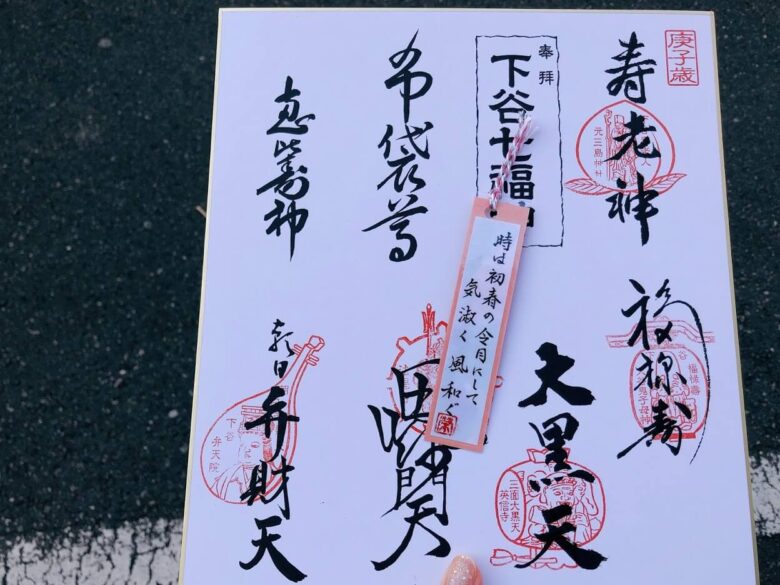 庚子歳
寿老神
元三島神社
福禄寿
福禄寿
奉拝
下谷七福神
大黒天
三面大黒天
英信寺
布袋尊
毘沙門天
恵比寿神
朝日弁財天
下谷
弁天院
時は初春の令月にして
気淑く風和ぐ